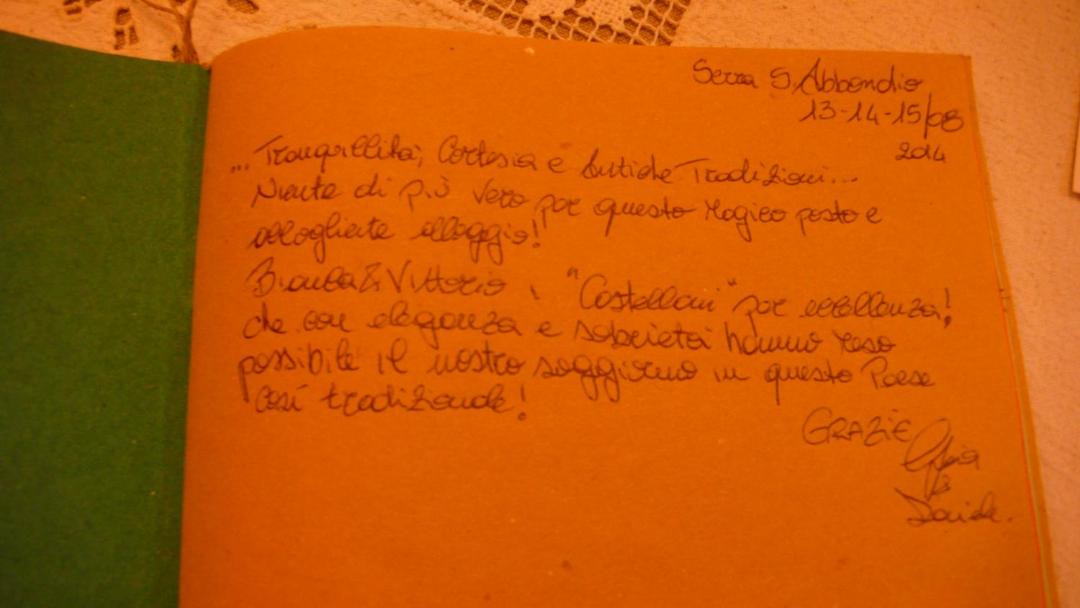 Serra S. Abbondio
13-14-15/08
2014
... Tranquillità, Cortesia e Antiche Tradizioni...
Niente di più vero per questo magico posto e
accogliente alloggio!
Bianca & Vittorio, i "Castellani" per eccellenza!
che con eleganza e sobrietà hanno reso
possibile il nostro soggiorno in questo Paese
così tradizionale!
GRAZIE
Davide.